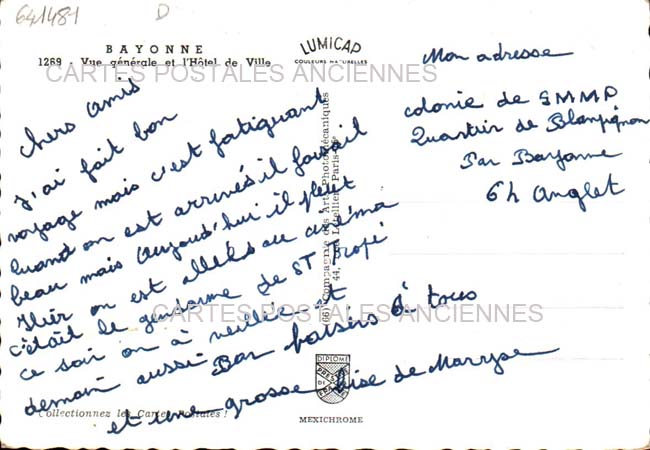 641481
D
BAYONNE
1269 - Vue générale et l'Hôtel de Ville
LUMICAP
COULEURS NATURELLES
CARTES POSTALES ANCIENNES
chers amis
J'ai fait bon
voyage mais c'est fatiguant
Quand on est arrivés il faisait
beau mais aujourd'hui il pleut
Hier on est allés au cinéma
c'était le gendarme de ST Tropé
ce soir on à veillée et
demain aussi Bon baisers à tous
et une grosse bise de Maryse
Mon adresse
colonie de SMMP
Quartier de Blanpignon
Par Bayonne
64 Anglet
Compagnie des Arts Photomécaniques
44, Rue Letellier, Paris
CARTES POSTALES ANCIENNES
DIPLOME
PRESTIGE
DE LA
FRANCE
Collectionnez les Cartes Postales !
MEXICHROME